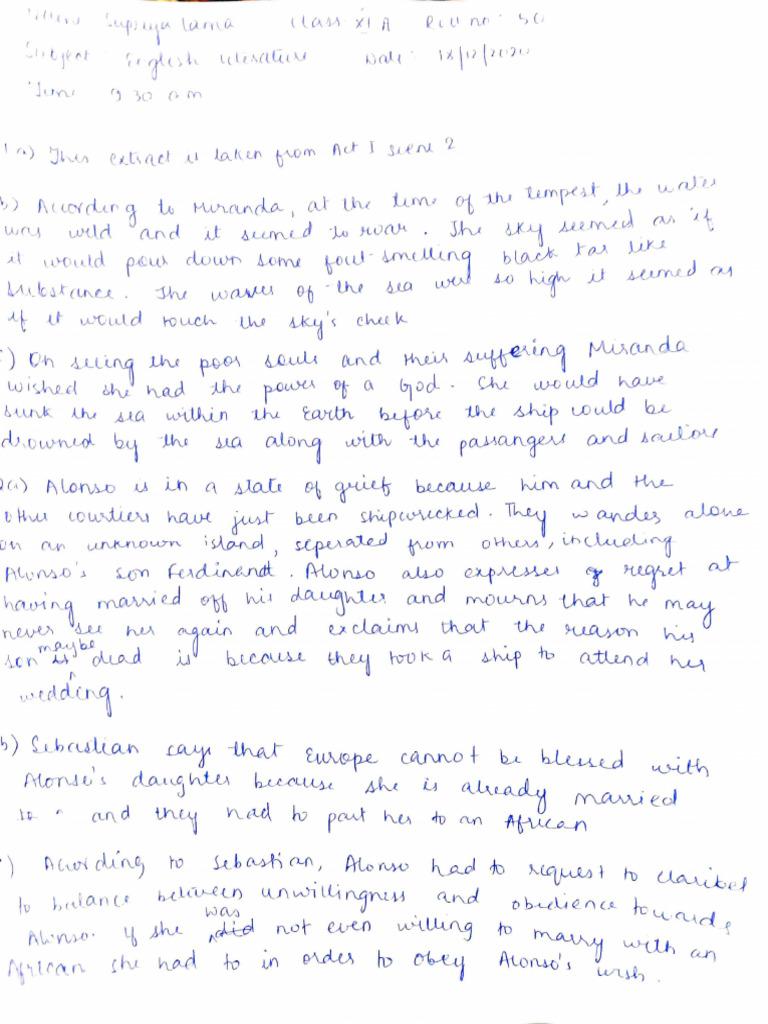 Supriya Lama Class XI A Roll no: 30
Subject: English Literature Date: 18/12/2020
Time 9 30 am
1 a) This extract is taken from Act I scene 2
b) According to Miranda, at the time of the tempest, the water
was wild and it seemed to roar. The sky seemed as if
it would pour down some foul-smelling black tar like
substance. The waves of the sea were so high it seemed as
if it would touch the sky's cheek
c) On seeing the poor souls and their suffering Miranda
wished she had the power of a God. She would have
sunk the sea within the Earth before the ship could be
drowned by the sea along with the passangers and sailors
2(a) Alonso is in a state of grief because him and the
other courtiers have just been shipwrecked. They wander alone
on an unknown island, seperated from others, including
Alonso's son Ferdinand. Alonso also expresses regret at
having married off his daughter and mourns that he may
never see her again and exclaims that the reason his
son maybe dead is because they took a ship to attend her
wedding.
b) Sebastian says that Europe cannot be blessed with
Alonso's daughter because she is already married
to and they had to part her to an African
) According to Sebastian, Alonso had to request to Claribel
to balance between unwillingness and obedience towards
Alonso. If she was not even willing to marry with an
African she had to in order to obey Alonso's wish.